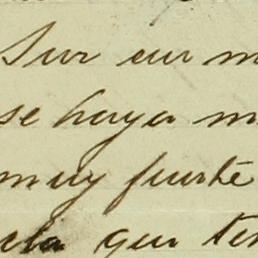 Sur eur m
se haya m
muy fuerte
cla que ten